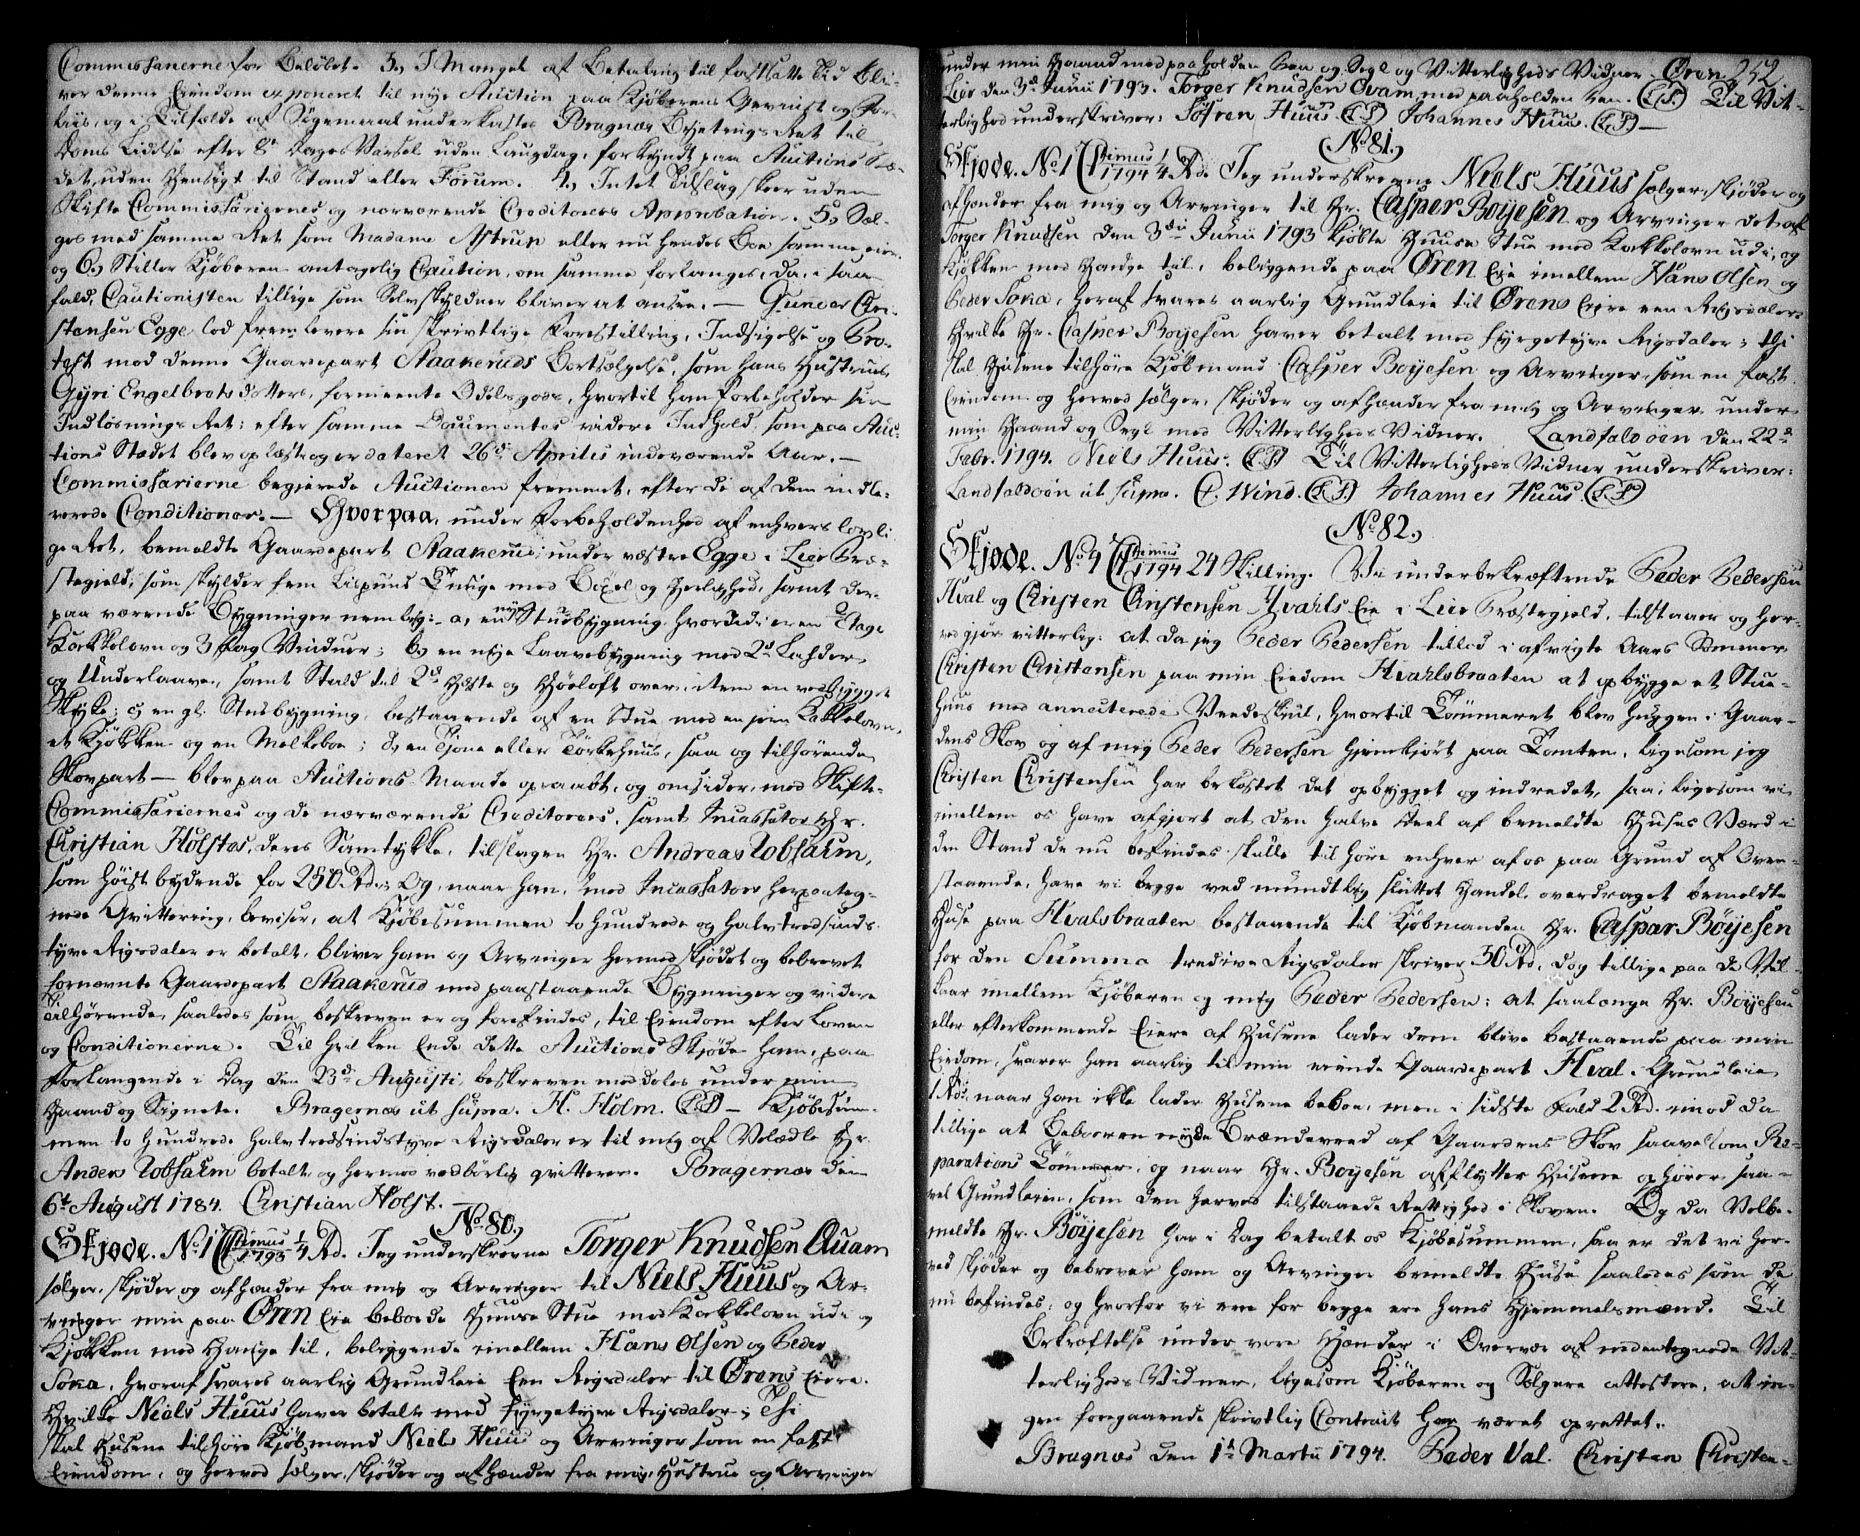 Commissairerne for Beløbet. 3, I Mangel af Betaling til fastsatte Tid bli-
ver denne Eiendom exponeret til nye Auction paa Kjøberens Gevinst og For-
liis, og i Tilfælde af Søgemaal underkastes Bragnæs Byetings Ret til
Doms Lidelse efter 8te Dages Varsel uden Laugdag, forkyndt paa Auctions Stæ-
det, uden Hensigt til Stand eller Forum. 4, Intet Tilslag skeer uden
Skifte Commissairiernes og nærværende Creditorers Approbation. 5, Sæl-
ges med samme Ret som Madame Astrup eller nu hendes Boe samme eier.
og 6, Stiller Kjøberen antagelig Caution, om samme forlanges, da, i saa
fald, Cautionisten tillige som Selvskyldner bliver at ansee. — Gunder Chri-
stensen Egge lod fremlevere sin skrivtlige Forestilling, Indsigelse og Pro-
test mod denne Gaardepart Staakeruds Bortsælgelse, som hans Hustrue
Gyri Engelbretsdotters, formeente Odelsgods, hvortil han forbeholder sin
Indløsnings Ret; efter samme Documentes videre Indhold, som paa Auc-
tions Stædet blev oplæst og er dateret 26de Aprilis indeværende Aar. —
Commissarierne begjerede Auctionen fremmet, efter de af dem indle-
verede Conditioner. — Hvorpaa, under Forbeholdenhed af enhvers lovli-
ge Ret, bemeldte Gaardepart Staakerud, under væstre Egge i Lier Præ-
stegield, som skylder fem Lispund Tunge med Bøxel og Herlighed, samt der-
paa værende Bygninger nemlig: a, en nye Stuebygning hvorudi er en Etage
Kakkelovn og 3 fag Vinduer; b, en nye Laavebygning med 2de Lahder
og Underlaave, samt Stald til 2de Heste og Høeloft over, item en vedbygget
Skykke; c, en gl. Stuebygning, bestaaende af en Stue med en jern Kakkelovn,
et Kjøkken og en Melkeboe; d, en Tjone eller Tørkehuus, saa og tilhørende
Skovpart — blev paa Auctions Maade opraabt, og omsider, med Skifte-
Commissariernes og de nærværende Creditorers, samt Incassator Hr.
Christian Holstes, deres Samtykke, tilslagen Hr. Andreas Tobsalm,
som høist bydende for 250 Rd. Og, naar han, med Incassators herpaateg-
nede Qvittering, beviser, at Kjøbesummen to hundrede og halvtredsinds-
tyve Rigsdaler er betalt, bliver ham og Arvinger hermed skjødet og bebrevet
fornævnte Gaardepart Staakerud med paastaaende Bygninger og videre
tilhørende, saaledes som beskreven er og forefindes, til Eiendom efter Loven
og Conditionerne. Til hvilken Ende dette Auctions Skjøde ham, paa
Forlangende i Dag den 23de Augusti, beskreven meddeles under min
Haand og Signete. Bragernæs ut supra. H. Holm. (L.S.) — Kjøbesum-
men to hundrede halvtredsindstyve Rigsdaler er til mig af Velædle Hr.
Anders Tobsalm betalt, og hermed vedbørlig qvitteres. Bragernæs den
6te August 1784. Christian Holst. —
(No 80.)
Skjøde. No 1 Primus 1793 1/4 Rd. Jeg underskrevne Torger Knudsen Quam
sælger, skjøder og afhænder fra mig og Arvinger til Niels Huus og Ar-
vinger min paa Øren Eie beboede Huuse Stue med Kakkelovn udi og
Kjøkken med Hænge til, beliggende imellem Hans Olsen og Peder
Sona, hvoraf svares aarlig Grundleie Een Rigsdaler til Ørens Eiere.
Hvilke Niels Huus haver betalt med fyrgetyve Rigsdaler; Thi
skal Husene tilhøre Kjøbmand Niels Huus og Arvinger som en fast
Eiendom, og herved sælger, skjøder og afhænder fra mig, Hustrue og Arvinger
252
under min Haand med paaholden Pen og Segl og Vitterligheds Vidner. Øren
Lier den 3de Junii 1793. Torger Knudsen Qvam med paaholden Pen. (L.S.) Til Vit-
terlighed underskriver: Søfren Huus (L.S.) Johannes Huus. (L.S.) —
(No 81.)
Skjøde. No 1 Primus 1794 1/4 Rd. Jeg underskrevne Niels Huus sælger, skjøder og
afhænder fra mig og Arvinger til Hr. Casper Boyesen og Arvinger det af
Torger Knudsen den 3die Junii 1793 kjøbte Huuse Stue med Kakkelovn udi, og
Kjøkken med Hænge til, beliggende paa Øren Eie imellem Hans Olsen og
Peder Sona, heraf svares aarlig Grundleie til Ørens Eiere een Rigsdaler.
Hvilke Hr. Casper Boyesen haver betalt med fyrgetyve Rigsdaler; thi
skal Husene tilhøre Kjøbmand Casper Boyesen og Arvinger, som en fast
Eiendom og herved sælger, skjøder og afhænder fra mig og Arvinger under
min Haand og Segl med Vitterligheds Vidner. Landfaldøen den 22de
Febr. 1794. Niels Huus. (L.S.) Til Vitterligheds Vidner underskriver:
Landfaldøen ut supra. C. Wind. (L.S.) Johannes Huus (L.S.)
(No 82.)
Skjøde. No 4 Primus 1794 24 Skilling. Vi underbekræftende Peder Pedersen
Hval og Christen Christensen Hvahls Eie i Lier Præstegjeld, tilstaaer og her-
ved gjør vitterlig: at da jeg Peder Pedersen tillod i afvigte Aars Sommer
Christen Christensen paa min Eiendom Hvahlsbraaten at opbygge et Stue-
huus med annecterede Vedeskiul, hvortil Tømmeret blev huggen i Gaar-
dens Skov og af mig Peder Pedersen hjemkjørt paa Tomten, ligesom jeg
Christen Christensen har bekostet det opbygget og indredet, saa, ligesom vi
imellem os have afgjort at den halve Deel af bemeldte Huses Værd i
den Stand de nu befindes skulle tilhøre enhver af os paa Grund af Oven-
staaende, have vi begge ved mundtlig sluttet Handel overdraget bemeldte
Huse paa Hvalsbraaten bestaaende til Kjøbmanden Hr. Caspar Böyesen
for den Summa tredive Rigsdaler skriver 30 Rd, dog tillige paa de Vil-
kaar imellem Kjøberen og mig Peder Pedersen: at saalænge Hr. Böyesen
eller efterkommende Eiere af Husene lader dem blive bestaaende paa min
Eiendom, svarer han aarlig til min eiende Gaardepart Hval i Grundleie
1 Rd. naar han ikke lader Husene beboe, men i sidste Fald 2 Rd. imod da
tillige at Beboeren nyde Brændeved af Gaardens Skov saavelsom Re-
parations Tømmer, og naar Hr. Boyesen afflytter Husene ophører saa-
vel Grundleien, som den herved tilstaaede Rettighed i Skoven. Og da Velbe-
meldte Hr. Böyesen har i Dag betalt os Kjøbesummen, saa er det vi her-
ved skjøder og bebrever ham og Arvinger bemeldte Huse saaledes som de
nu befindes, og hvorfor vi een for begge ere hans Hjemmelsmænd. Til
Bekræftelse under vore Hænder i Overvær af medentegnede Vit-
terligheds Vidner, ligesom Kjøberen og Sælgere attestere, at in-
gen foregaaende skrivtlig Contract har været oprettet.
Bragnæs den 1te Martii 1794. Peder Val. Christen Christen-